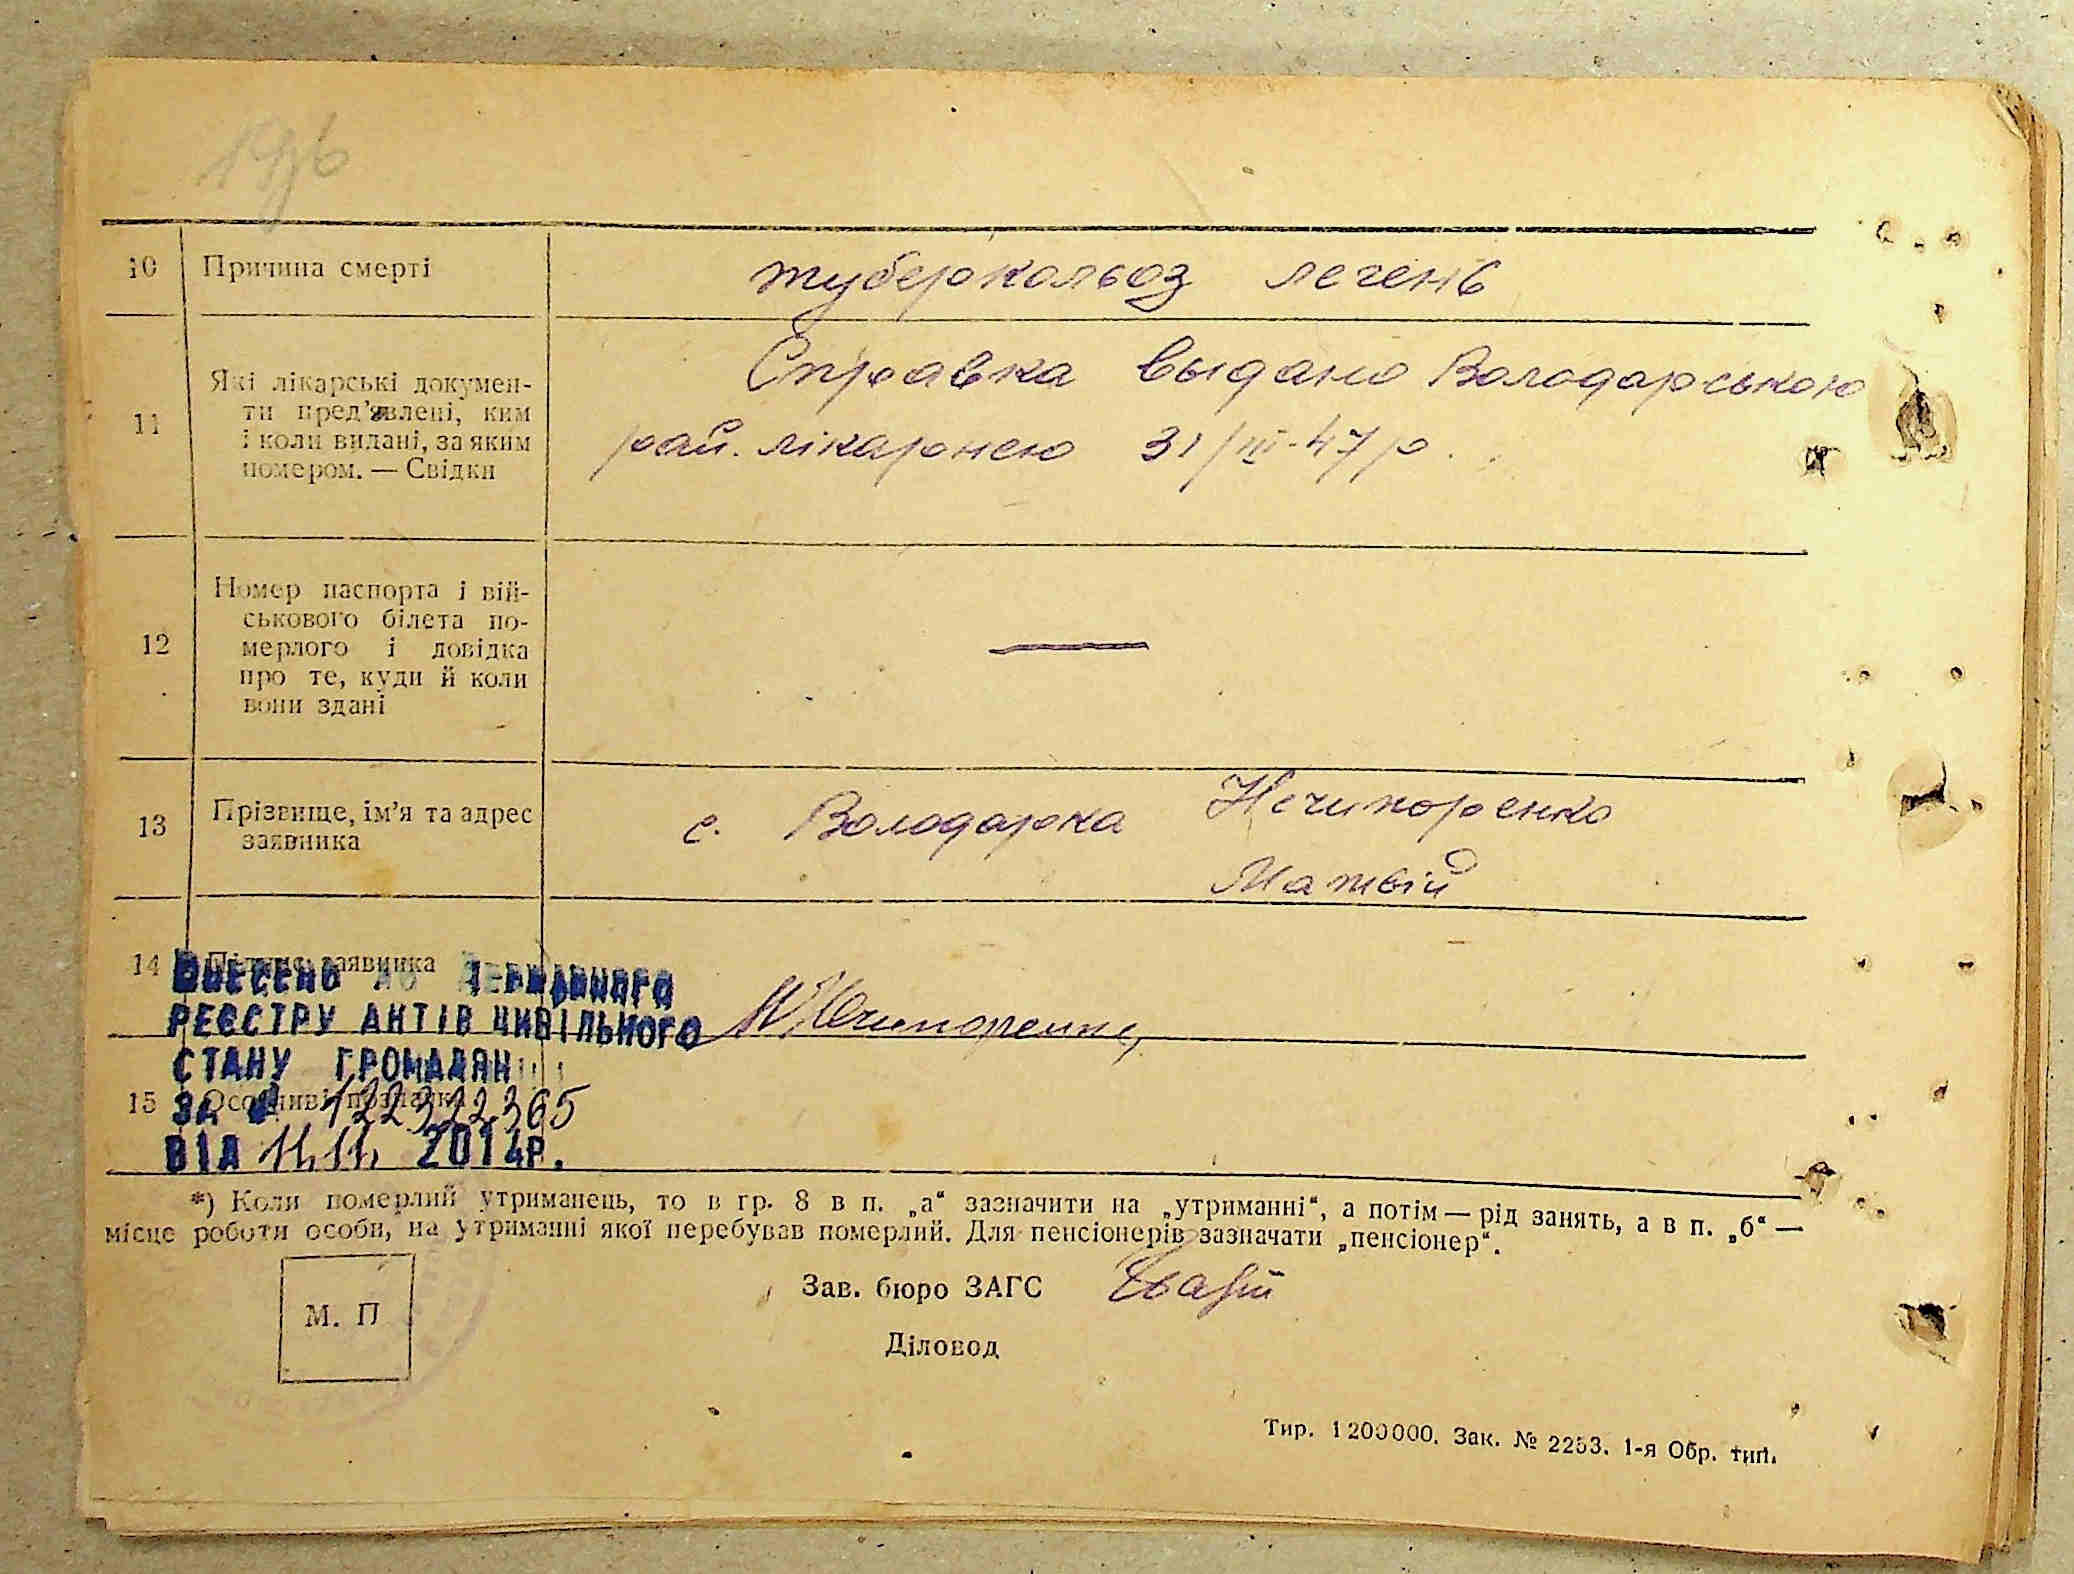 10 Причина смерті туберкольоз легень
11 Які лікарські докумен-
ти пред'явлені, ким
і коли видані, за яким
номером. — Свідки
Справка выдано Володарською
рай. лікарнею 31/III-47р.
12 Номер паспорта і вій-
ськового білета по-
мерлого і довідка
про те, куди й коли
вони здані
—
13 Прізвище, ім'я та адрес
заявника
с. Володарка Нечипоренко
Матвій
14 Підпис заявника
Нечипоренко
15 Особливі позначки
ВНЕСЕНО ДО ДЕРЖАВНОГО
РЕЄСТРУ АКТІВ ЦИВІЛЬНОГО
СТАНУ ГРОМАДЯН
ЗА № 122322365
ВІД 11.11. 2014Р.
*) Коли померлий утриманець, то в гр. 8 в п. „а“ зазначити на „утриманні“, а потім — рід занять, а в п. „б“ —
місце роботи особи, на утриманні якої перебував померлий. Для пенсіонерів зазначати „пенсіонер“.
М. П
Зав. бюро ЗАГС
Діловод
Тир. 1200000. Зак. № 2253. 1-я Обр. тип.